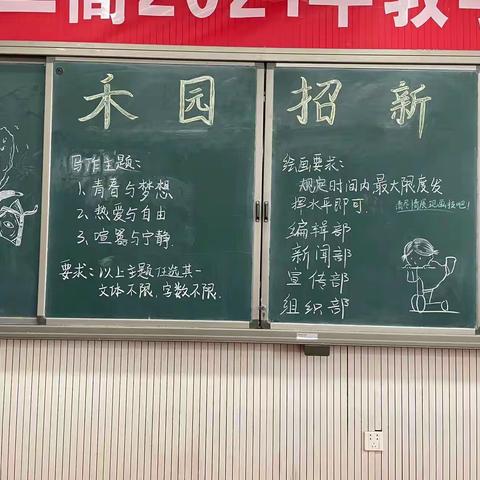 高2024年教
禾园
招新
写作主题:
1、青春与梦想
2、热爱与自由
3、喧嚣与宁静.
要求:以上主题任选其一
文体不限,字数不限.
绘画要求:
规定时间内最大限度发
挥水平即可.
请尽情展现画技吧!
编辑部
新闻部
宣传部
组织部